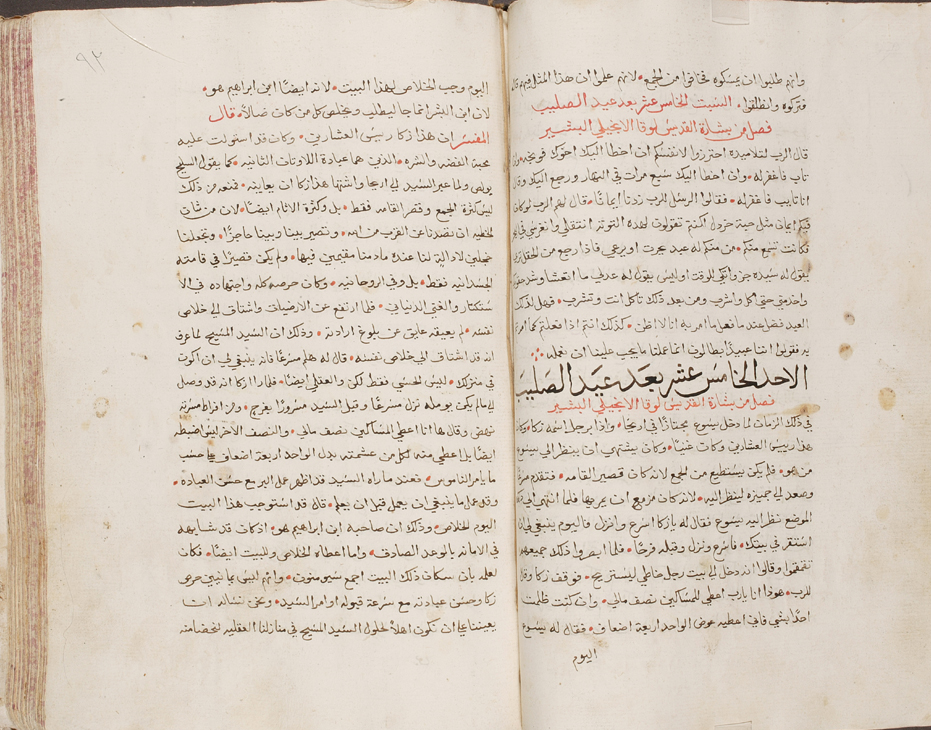 وانهم طلبوا ان يمسكوه فخافوا من الجمع • لانهم علموا ان هذا المثل فيهم قال
فتركوه وانطلقوا • السبت الخامس عشر بعد عيد الصليب
فصل من بشارة القديس لوقا الانجيلي البشير
قال الرب لتلاميذه احترزوا لانفسكم ان اخطا اليك اخوك فوبخه وان
تاب فاغفر له • وان اخطا اليك سبع مرات في النهار ورجع اليك وقال
انا تايب فاغفر له • فقالوا الرسل للرب زدنا ايمانًا • قال لهم الرب لو كان
فيكم ايمان مثل حبة خردل لكنتم تقولون لهذه التوتة انتقلي وانغرسي في
فكانت تسمع منكم • من منكم له عبد يحرث او يرعى فاذا رجع من الحقل
يقول له سيده جز واتكي للوقت اوليس يقول له عد لي ما اتعشا وشد حقويك
واخدمني حتى اكل واشرب ومن بعد ذلك تاكل انت وتشرب • فهل لذلك
العبد فضل عند ما فعل ما امر به انا لا اظن • كذلك انتم اذا فعلتم كلما امرتم
به فقولوا اننا عبيدًا بطالون انما عملنا ما يجب علينا ان نعمله •
الاحد الخامس عشر بعد عيد الصليب
فصل من بشارة القديس لوقا الانجيلي البشير
في ذلك الزمان لما دخل يسوع مجتازًا في اريحا • واذا برجل اسمه زكا وكان
هذا رييس العشارين وكان غنيًا • وكان يشتهي ان ينظر الى يسوع
من هو • فلم يكن يستطيع من الجمع لانه كان قصير القامه • فتقدم مسرعًا
وصعد الى جميزه لينظر اليه • لانه كان مزمع ان يمر بها فلما انتهى الى
الموضع نظر اليه يسوع فقال له يا زكا اسرع وانزل فاليوم ينبغي لي ان
استقر في بيتك • فاسرع ونزل وقبله فرحًا • فلما ابصروا ذلك جميعهم
تقمقموا وقالوا انه دخل الى بيت رجل خاطي ليستريح • فوقف زكا وقال
للرب • هوذا انا يارب اعطي للمساكين نصف مالي • وان كنت ظلمت
احدًا بشي فاني اعطيه عوض الواحد اربعة اضعاف • فقال له يسوع
اليوم
٩٣
اليوم وجب الخلاص لهذا البيت • لانه ايضًا ابن ابراهيم هو •
لان ابن البشر انما جا ليطلب ويخلص كل من كان ضالًا • قال
المفسر ان هذا زكا رييس العشارين • وكان قد استولت عليه
محبة الفضه والشره • الذى هما عبادة الاوثان الثانيه • كما يقول السليح
بولص ولما عبر السيد الى اريحا واشتها هذا زكا ان يعاينه • فمنعه من ذلك
ليس كثرة الجمع وقصر القامه فقط • بل وكثرة الاثام ايضًا • لان من شان
الخطيه ان تصدنا عن القرب من الله • وتصير بيننا وبينه حاجزًا • وتجعلنا
خجلين لا دالة لنا عنده ما دمنا مقيمين فيها • ولم يكن قصيرًا في قامته
الجسدانيه فقط • بل وفي الروحانيه • وكان حرصه كله واجتهاده في الا
ستكتار والغنى الدنياني • فلما ارتفع عن الارضيات واشتاق الى خلاص
نفسه • لم يعيقه عايق عن بلوغ ارادته • وذلك ان السيد المسيح لما عرف
انه قد اشتاق الى خلاص نفسه • قال له هلم مسرعًا فانه ينبغي لي ان اكون
في منزلك • لليس الحسي فقط لكن والعقلي ايضًا • فلما راى زكا انه قد وصل
الى ما لم يكن يومله نزل مسرعًا وقبل السيد مسرورًا بفرح • ومن افراط مسرته
نهض وقال ها انا اعطي المساكين نصف مالي • والنصف الاخر ليس اضبطه
ايضًا بل اعطي منه لكل من غشمته بدل الواحد اربعة اضعاف حسب
ما يامر الناموس • فعند ما راه السيد قد اظهر عمل البر مع حسن العباده •
وقد عمل ما ينبغي ان يعمل قبل ان يعلم • قال قد استوجب هذا البيت
اليوم الخلاص • وذلك ان صاحبه ابن ابراهيم هو • اذ كان قد شابهه
في الامانه بالوعد الصادق • واما اعطاه الخلاص وللبيت ايضًا • فكان
لعلمه بان سكان ذلك البيت اجمع سيومنون • وانهم ليس بما نبين حرص
زكا وحسن عبادته مع سرعة قبوله اوامر السيد • ونحن نساله ان
يعيننا على ان نكون اهلًا لحلول السيد المسيح في منازلنا العقليه لنخضا منه